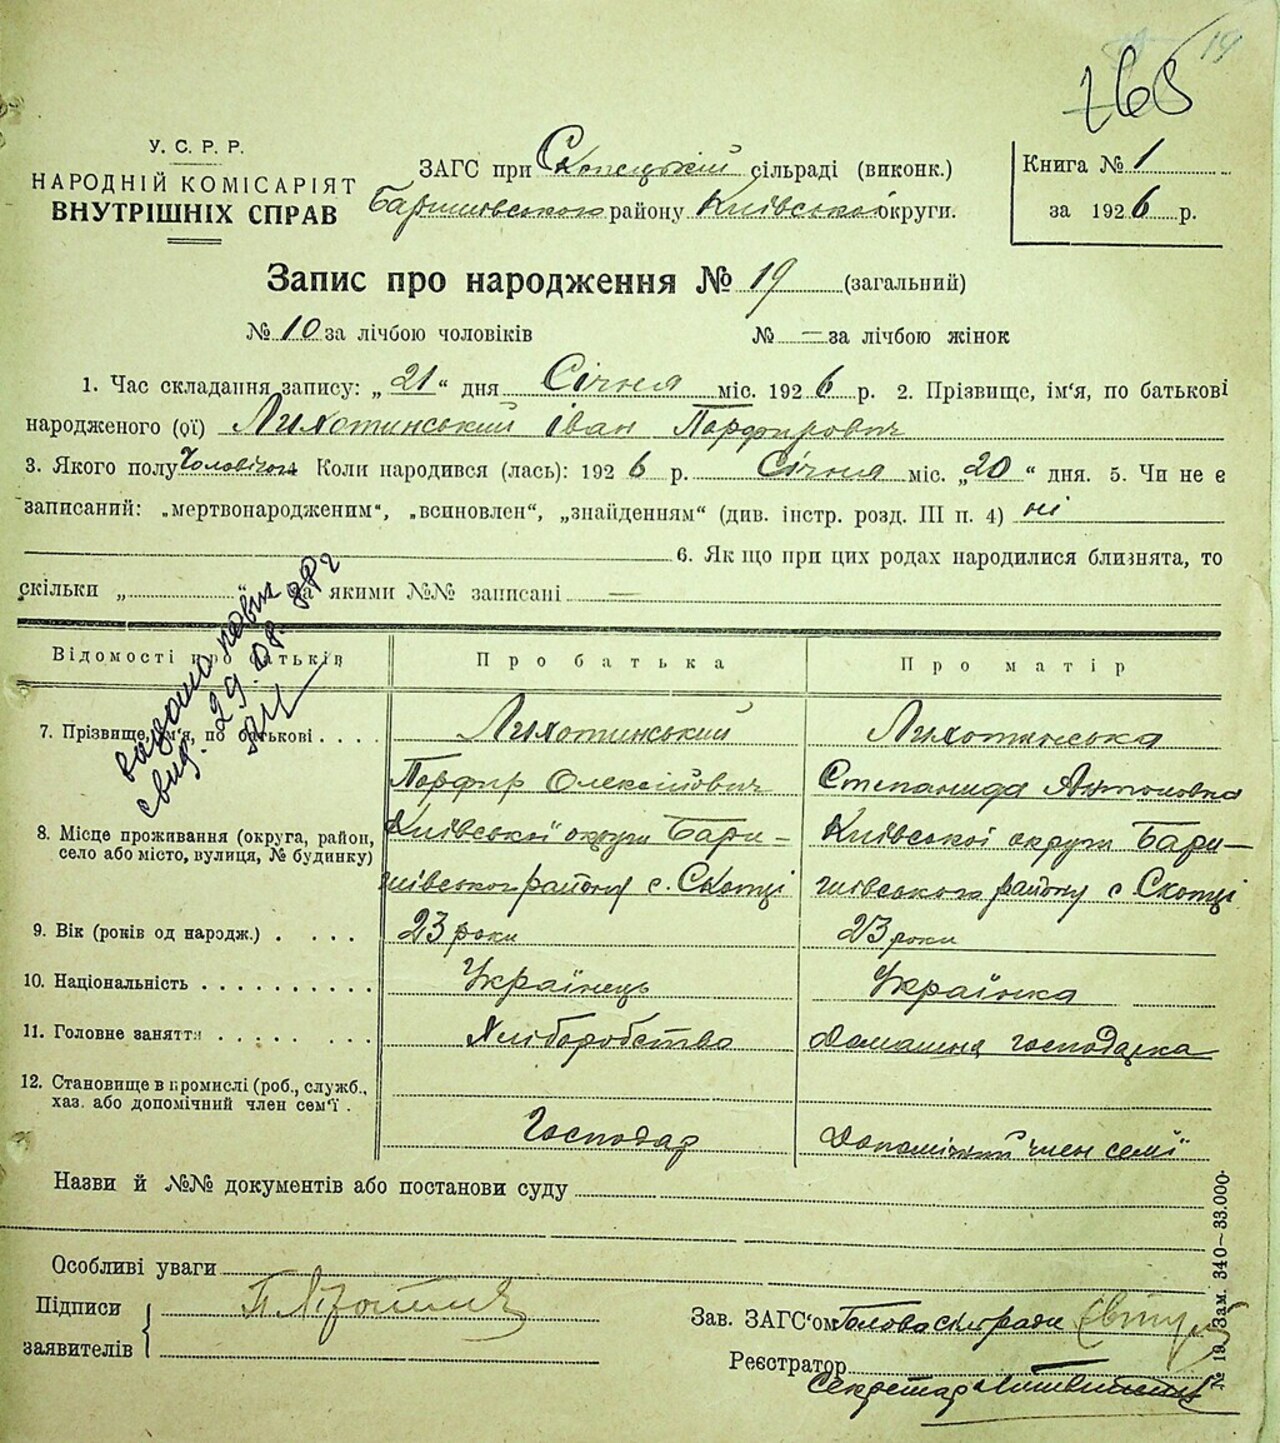 19
768
У. С. Р. Р.
НАРОДНІЙ КОМІСАРІЯТ
ВНУТРІШНІХ СПРАВ
ЗАГС при Скопецькій сільраді (виконк.)
Баришівського району Київської округи.
Книга № 1
за 1926 р.
Запис про народження № 19 (загальний)
№ 10 за лічбою чоловіків № — за лічбою жінок
1. Час складання запису: „ 21 “ дня Січня міс. 1926 р. 2. Прізвище, ім'я, по батькові
народженого (ої) Лихотинський Іван Порфирович
3. Якого полу Чоловічого Коли народився (лась): 1926 р. Січня міс. „20 “ дня. 5. Чи не є
записаний: „мертвонародженим“, „всиновлен“, „знайденням“ (див. інстр. розд. III п. 4) ні
6. Як що при цих родах народилися близнята, то
скільки „ “ за якими №№ записані —
видано
свид. 29.08.
Відомості про батьків Про батька Про матір
7. Прізвище, ім'я, по батькові . . . . Лихотинський Лихотинська
Порфир Олексійович Степанида Антоновна
8. Місце проживання (округа, район, село або місто, вулиця, № будинку) Київської округи Бари- Київської округи Бари-
шівського району с. Скопці шівського району с Скопці
9. Вік (років од народж.) . . . . 23 роки 23 роки
10. Національність . . . . . . . . . . Українець Українка
11. Головне заняття . . . . . . . . Хліборобство Домашня господарка
12. Становище в промислі (роб., служб., хаз. або допомічний член сем'ї .
Господар Допомічний член семї
Назви й №№ документів або постанови суду
Особливі уваги
Підписи
заявителів
Зав. ЗАГС'ом Голова сільради
Реєстратор
Секретар
№ 19 Зам. 340—33.000.